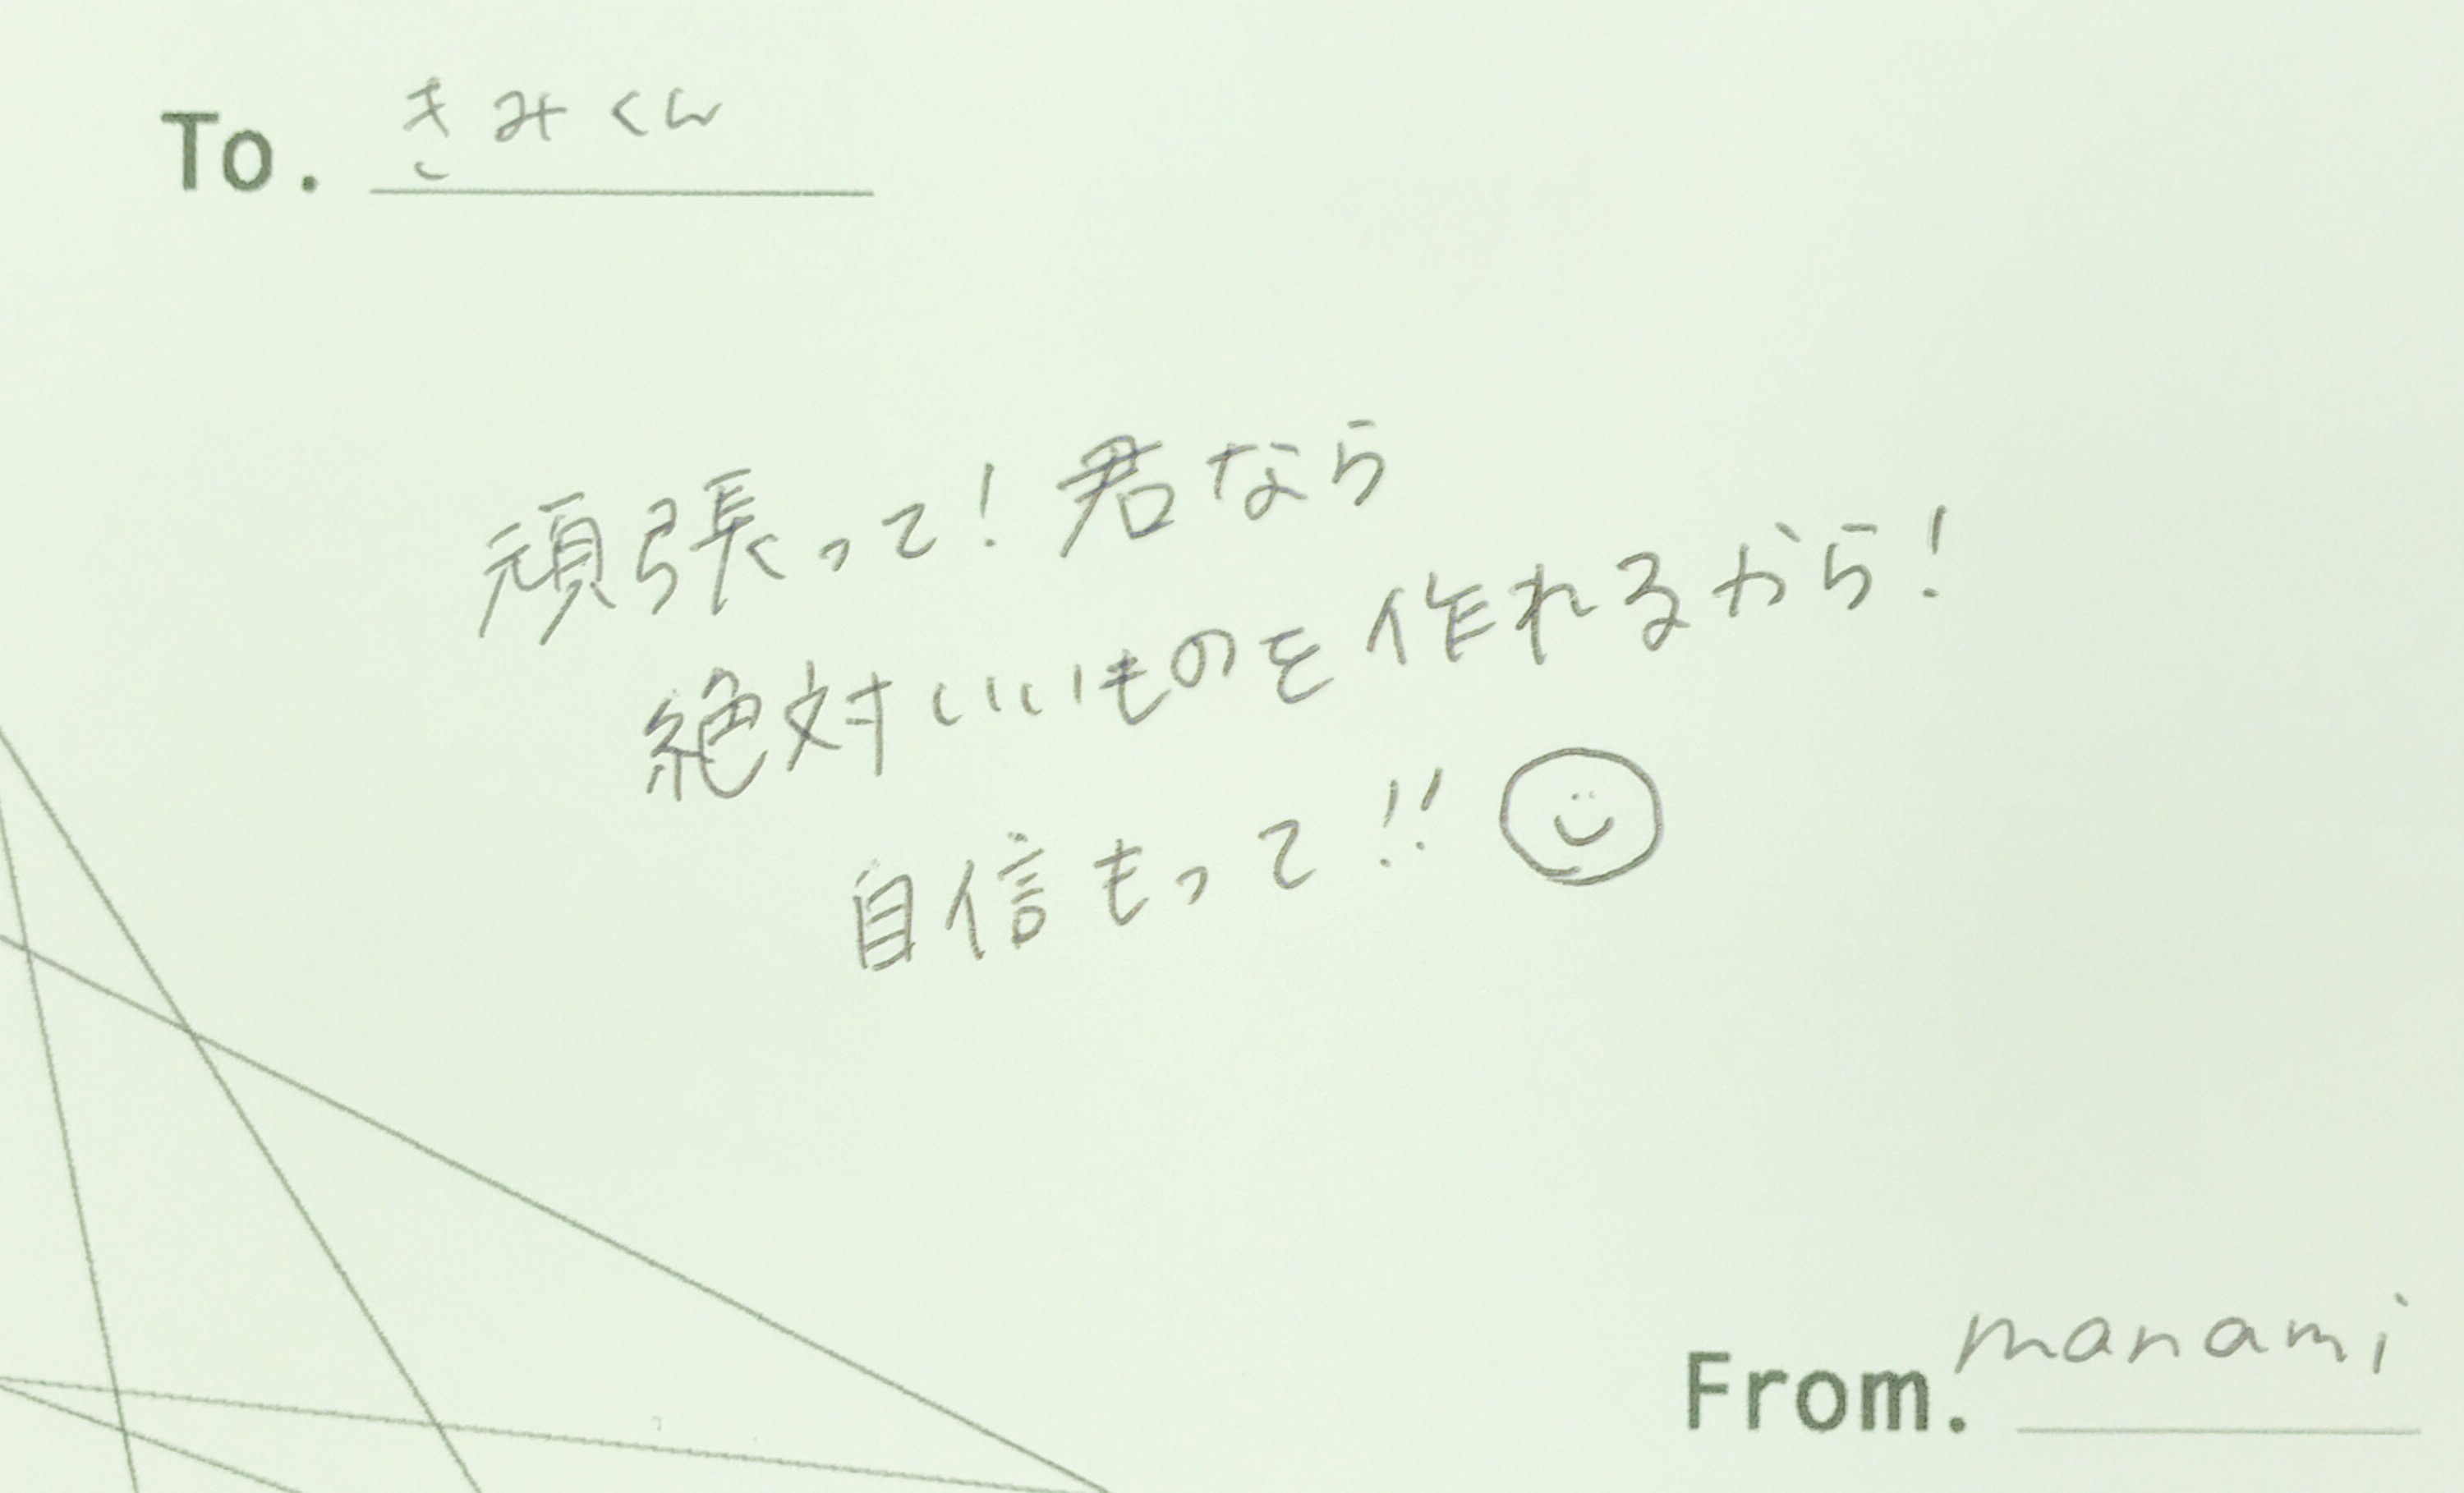 To. きみくん
頑張って！君なら
絶対いいものを作れるから！
自信もって!!
From. manami